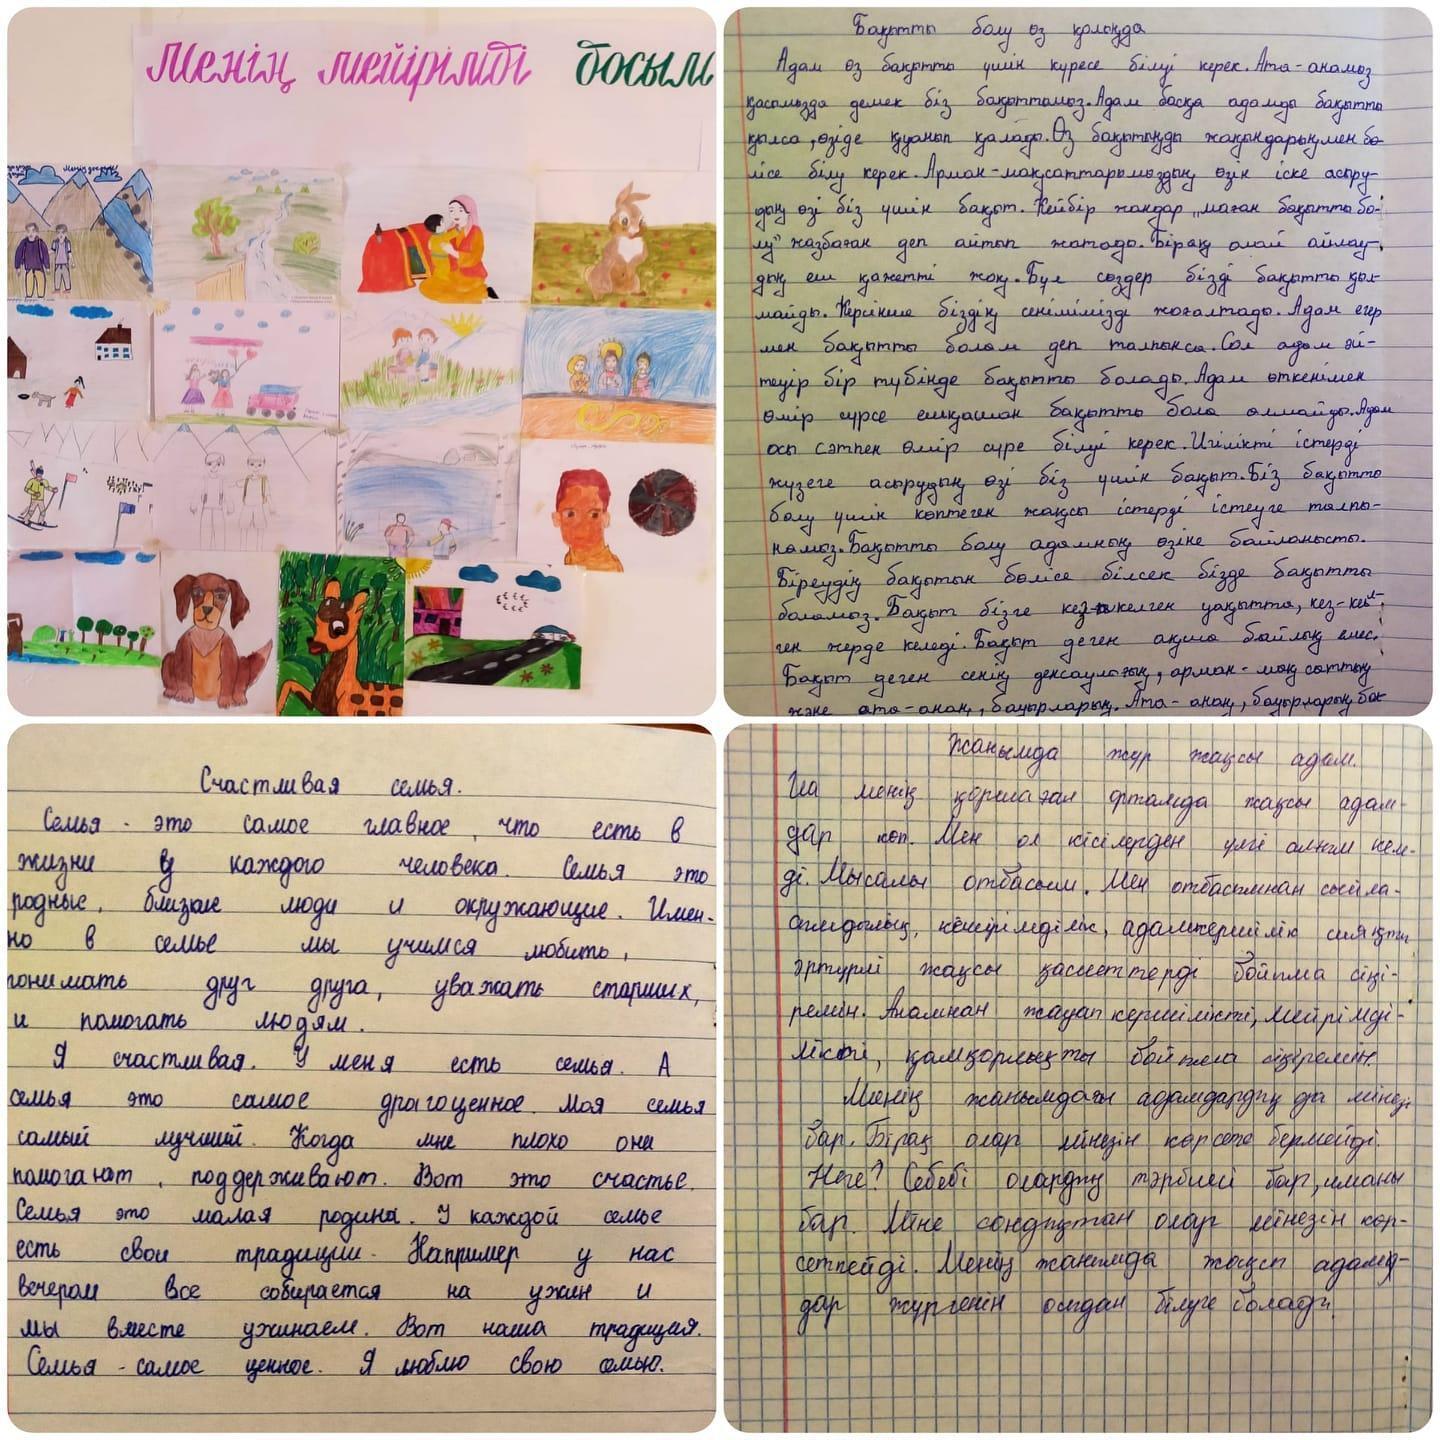 Менің мейірімді досым
Бақытты болу өз қолыңда
Адам өз бақытты үшін күресе білуі керек. Ата-анамыз
қасымызда демек біз бақыттымыз. Адам басқа адамды бақытты
қылса, өзіде қуанып қалады. Өз бақытыңды жақындарыңмен бө-
лісе білу керек. Арман-мақсаттарымыздың өзін іске асыру-
дың өзі біз үшін бақыт. Кейбір жандар „маған бақытты бо-
лу" жазбаған деп айтып жатады. Бірақ олай ойлау-
дың еш қажетті жоқ. Бұл сөздер бізді бақытты қыл-
майды. Керісінше біздің сенімімізді жоғалтады. Адам егер
мен бақытты болам деп талпынса. Сол адам әй-
теуір бір түбінде бақытты болады. Адам өткенімен
өмір сүрсе ешқашан бақытты бола алмайды. Адам
осы сәтпен өмір сүре білуі керек. Игілікті істерді
жүзеге асырудың өзі біз үшін бақыт. Біз бақытты
болу үшін көптеген жақсы істерді істеуге талпы-
намыз. Бақытты болу адамның өзіне байланысты.
Біреудің бақытын бөлісе білсек бізде бақытты
боламыз. Бақыт бізге кез-келген уақытта, кез-кел-
ген жерде келеді. Бақыт деген ақша байлық емес.
Бақыт деген сенің денсаулығың, арман-мақсаттың
және ата-анаң, бауырларың. Ата-анаң, бауырларың бақ
Счастливая семья.
Семья - это самое главное, что есть в
жизни у каждого человека. Семья это
родные, близкие люди и окружающие. Имен-
но в семье мы учимся любить,
понимать друг друга, уважать старших,
и помогать людям.
Я счастливая. У меня есть семья. А
семья это самое драгоценное. Моя семья
самый лучший. Когда мне плохо они
помогают, поддерживают. Вот это счастье.
Семья это малая родина. У каждой семье
есть свои традиции. Например у нас
вечером все собирается на ужин и
мы вместе ужинаем. Вот наша традиция.
Семья - самое ценное. Я люблю свою семью.
Жанымда жүр жақсы адам.
Иа менің қоршаған ортамда жақсы адам-
дар көп. Мен ол кісілерден үлгі аламын кем-
ді. Мысалы отбасым. Мен отбасымнан сыйла-
стықты, кешірімділік, адамгершілік сияқты
әртүрлі жақсы қасиеттерді бойыма сіңі-
ремін. Анамнан жауапкершілікті, мейрімді-
лікті, қамқорлықты бойыма сіңіремін.
Менің жанымдағы адамдардың да мінезі
бар. Бірақ олар мінезін көрсете бермейді.
Неге? Себебі олардың тәрбиесі бар, иманы
бар. Міне сондықтан олар мінезін көр-
сетпейді. Менің жанымда жақсы адам-
дар жүргенін осыдан білуге болады.